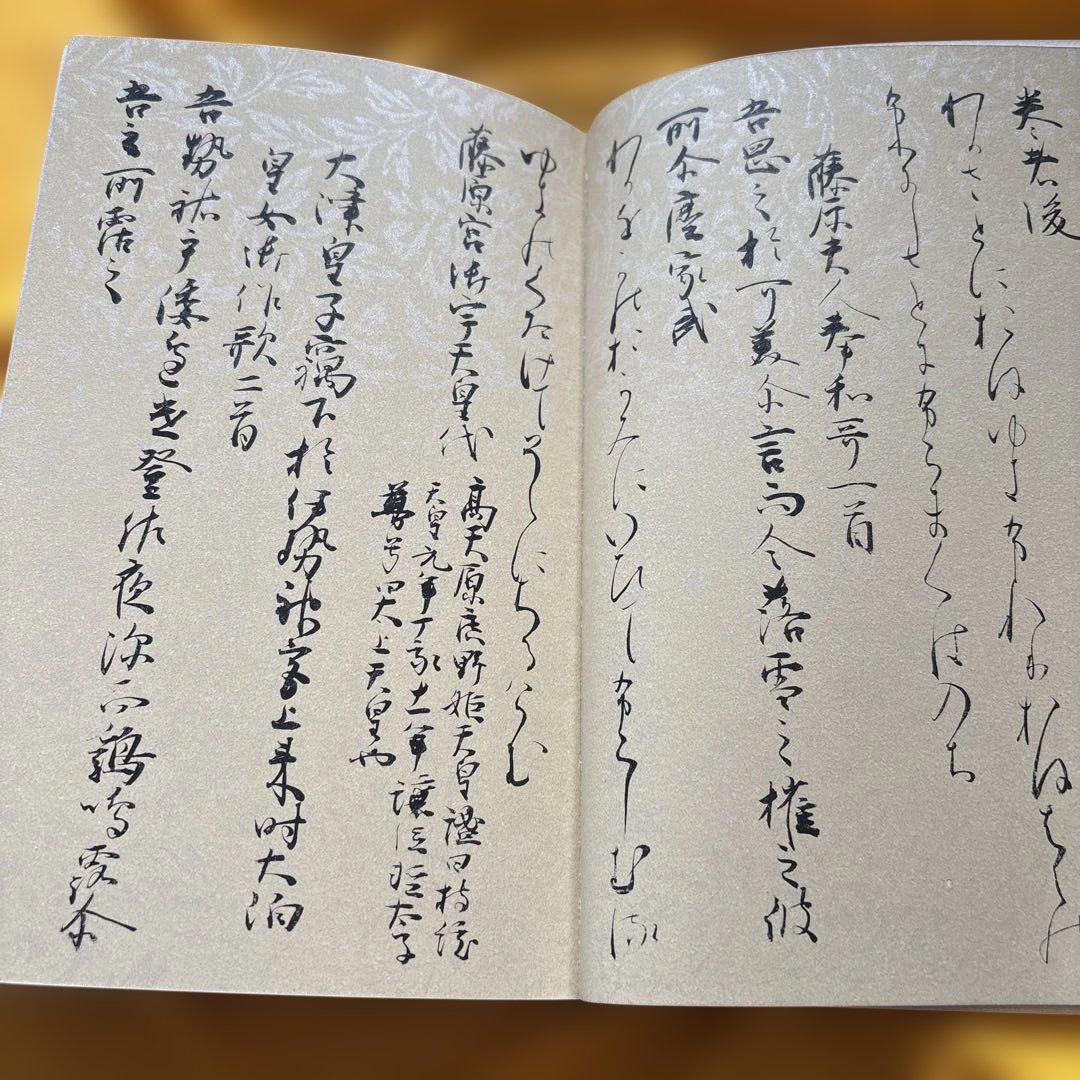 巻者後
わかさとにおほゆきふれりおほはらの
ふりにしさとにふらまくはのち
藤原夫人奉和哥一首
吾崗之於可美尓言而令落雪之摧之彼
所尓塵家武
わかをかのおかみにいひてふらしむる
ゆきのくたけしそこにちるらむ
藤原宮御宇天皇代 高天原廣野姫天皇謚曰持統
天皇元年丁亥十一年譲位軽太子
尊号曰太上天皇也
大津皇子竊下於伊勢神宮上来時大泊
皇女御作歌二首
吾勢祜乎倭邊遣登佐夜深而鶏鳴露尓
吾立所霑之